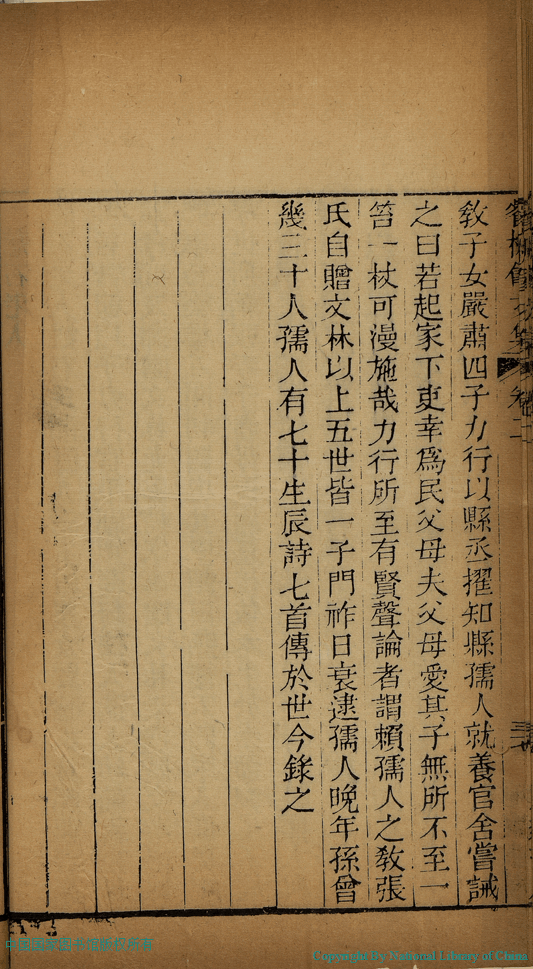 教子女嚴肅四子力行以縣丞擢知縣孺人就養官舍嘗誡
之曰若起家下吏幸爲民父母夫父母愛其子無所不至一
笞一杖可漫施哉力行所至有賢聲論者謂賴孺人之教張
氏自贈文林以上五世皆一子門祚日衰逮孺人晚年孫曾
幾三十人孺人有七十生辰詩七首傳於世今錄之
Copyright By National Library of China